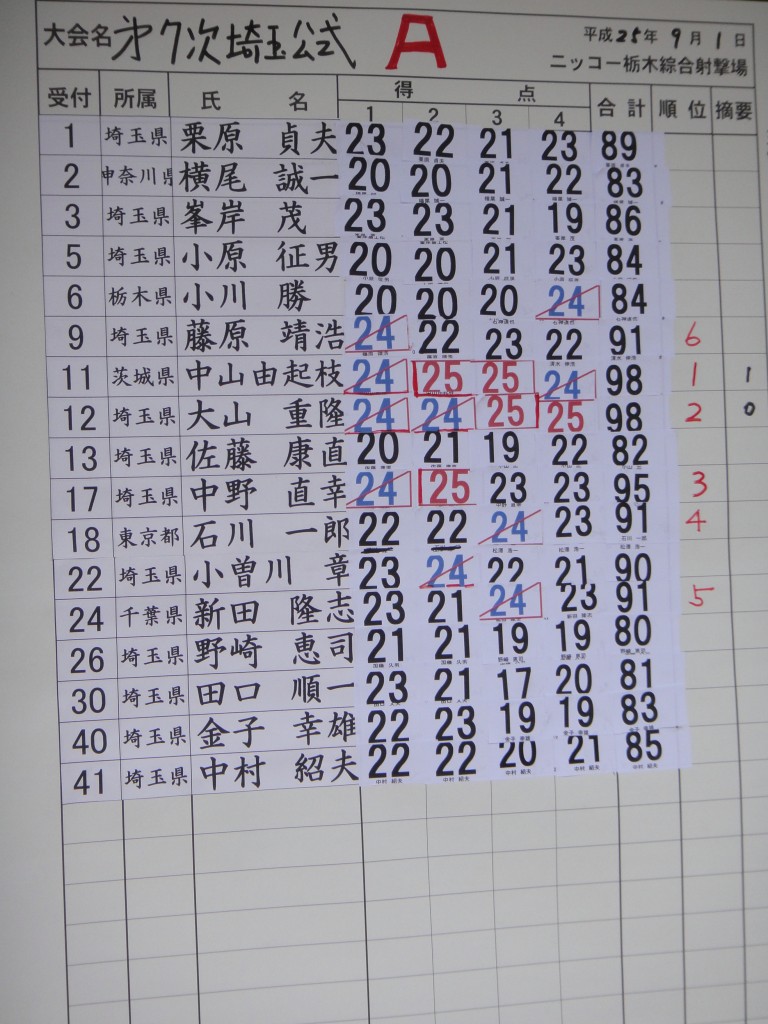 大会名 第7次埼玉公式 A 平成25年9月1日
ニッコー栃木綜合射撃場
受付 所属 氏名 得点 合計 順位 摘要
1 2 3 4
1 埼玉県 栗原 貞夫 23 22 21 23 89
2 神奈川県 横尾 誠一 20 20 21 22 83
3 埼玉県 峯岸 茂 23 23 21 19 86
5 埼玉県 小原 征男 20 20 21 23 84
6 栃木県 小川 勝 20 20 20 24 84
9 埼玉県 藤原 靖浩 24 22 23 22 91 6
11 茨城県 中山由起枝 24 25 25 24 98 1 1
12 埼玉県 大山 重隆 24 24 25 25 98 2 0
13 埼玉県 佐藤 康直 20 21 19 22 82
17 埼玉県 中野 直幸 24 25 23 23 95 3
18 東京都 石川 一郎 22 22 24 23 91 4
22 埼玉県 小曽川 章 23 24 22 21 90
24 千葉県 新田 隆志 23 21 24 23 91 5
26 埼玉県 野崎 恵司 21 21 19 19 80
30 埼玉県 田口 順一 23 21 17 20 81
40 埼玉県 金子 幸雄 22 23 19 19 83
41 埼玉県 中村 紹夫 22 22 20 21 85